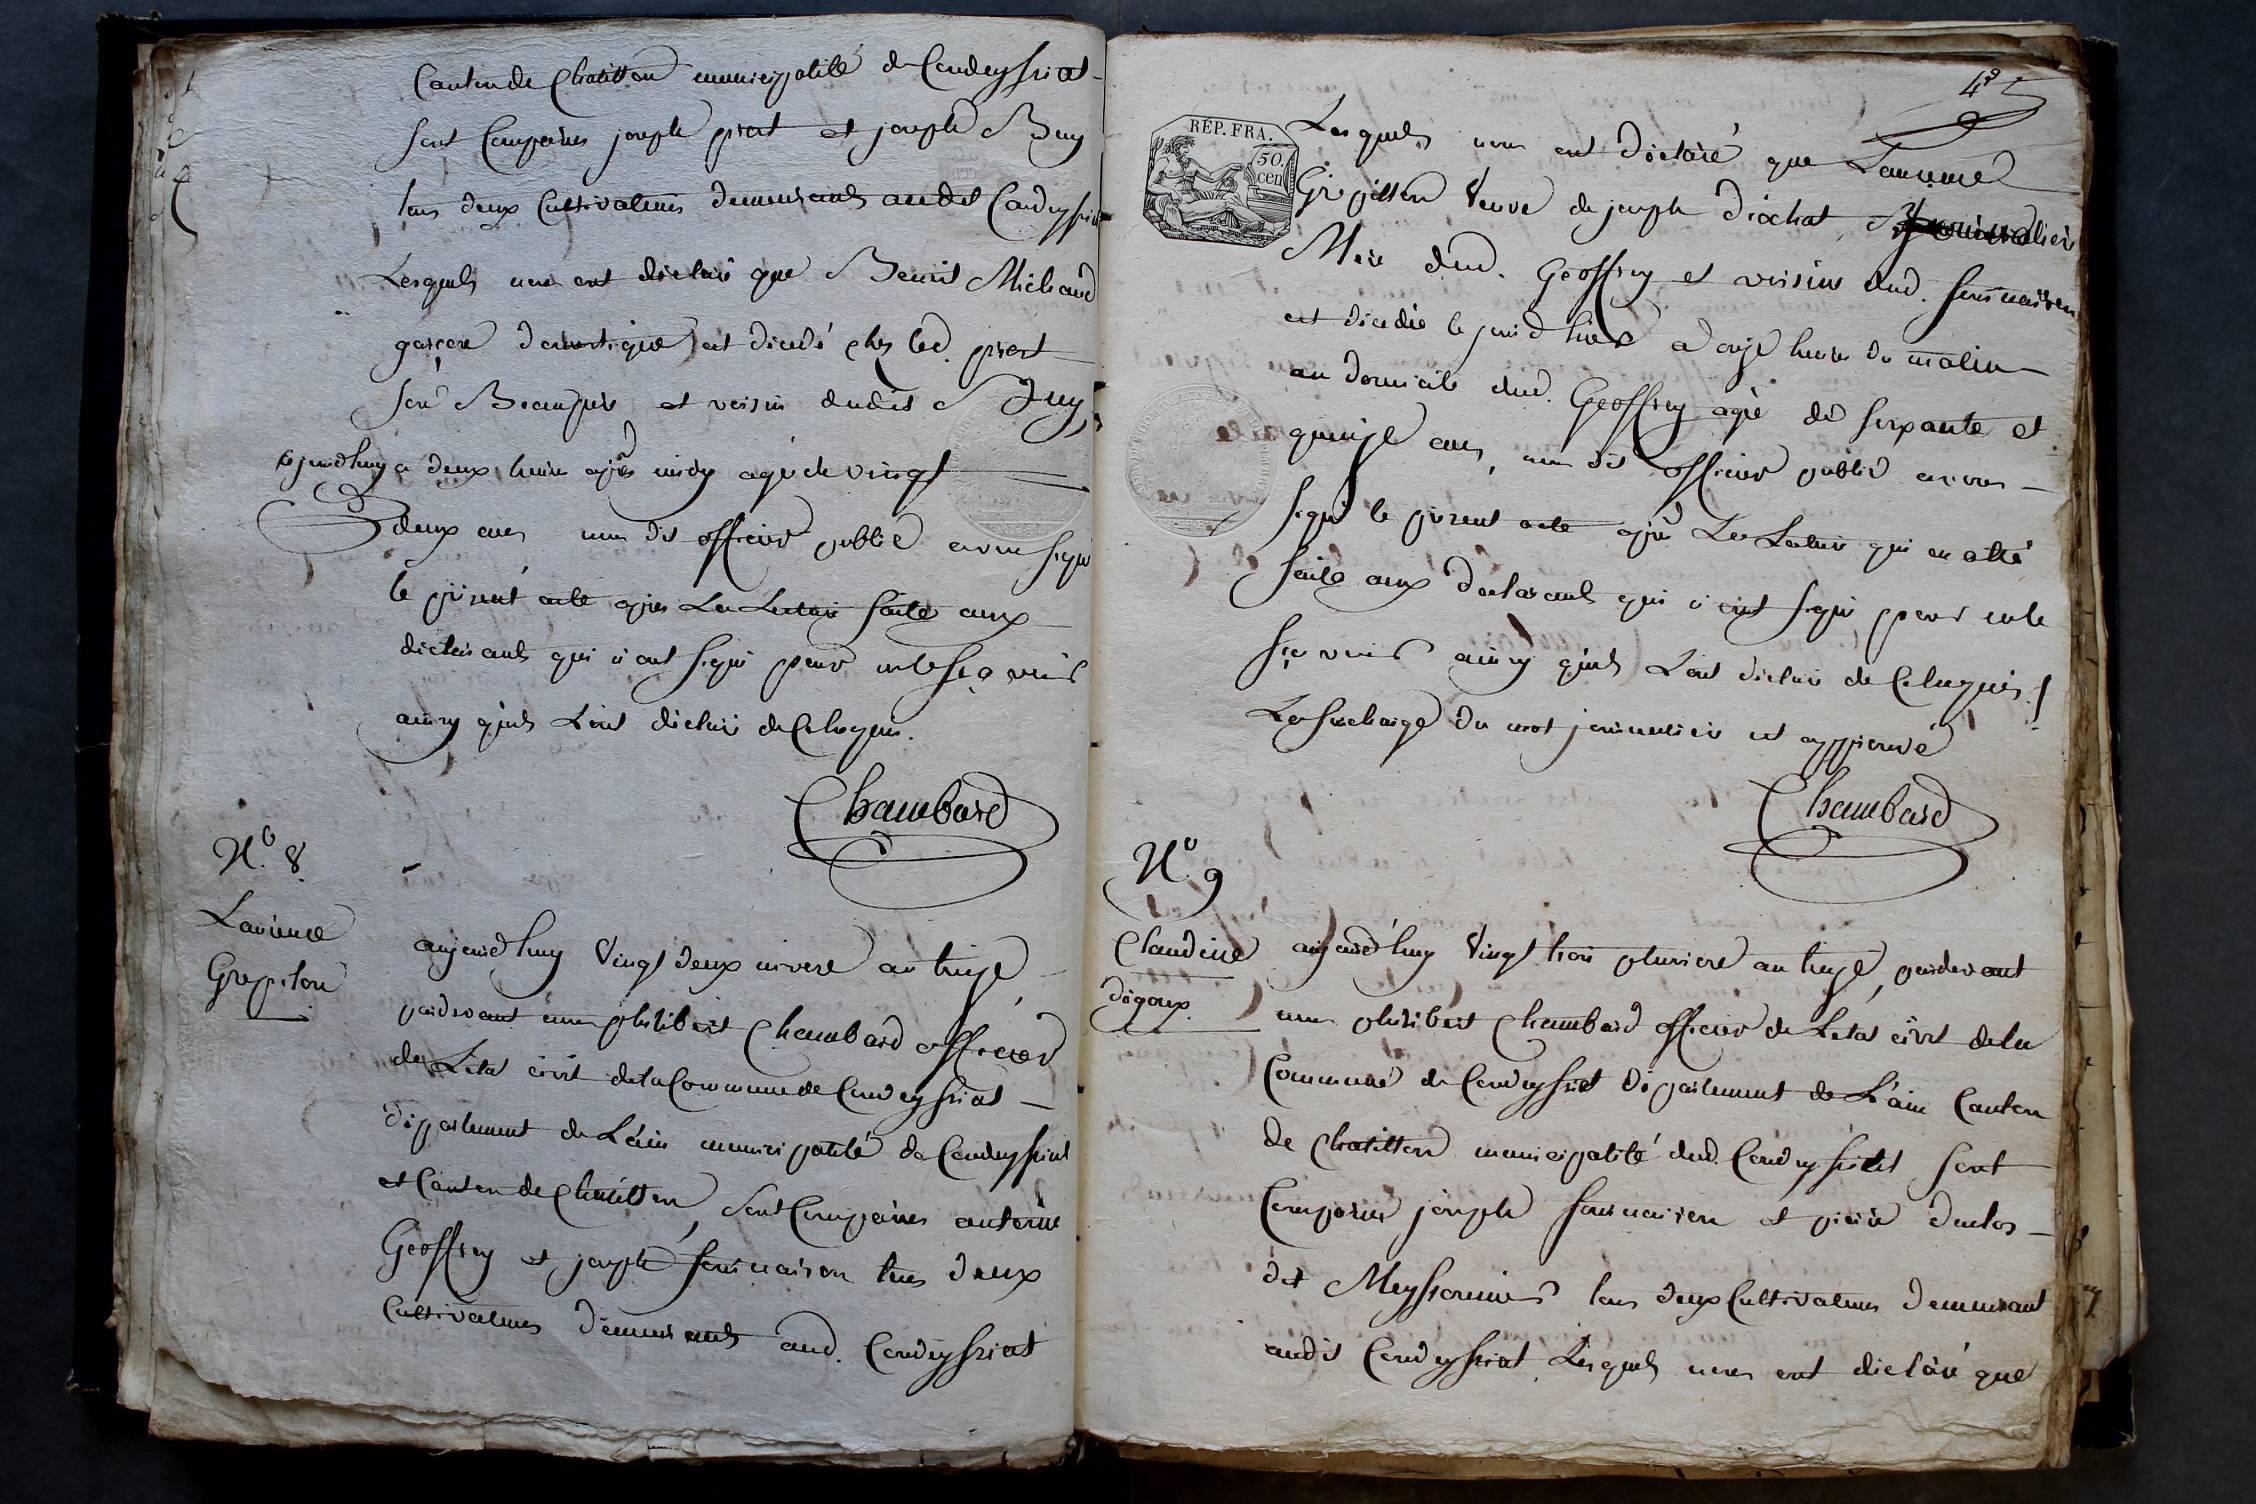 Canton de Chatillon municipalité de Condeyssiat
sont Comparus joseph prost et joseph Buy
tous deux Cultivateurs demeurants audit Condeyssiat
Lesquels nous ont déclaré que Benoit Michaud
garçon domestique est décédé chez led. prost
son Beaupere et voisin dudit Buy,
aujourdhuy a deux heure après midy agé de vingt
deux ans nous dit officier public avons signé
le présent acte après La Lecture faite aux
déclarants qui n'ont signé pour ne le sçavoir
ainsy qu'ils L'ont déclaré de Ce Requis.
Chambard
N.o 8.
Laurence
Grepilon
aujourdhuy Vingt deux nivose an treize
pardevant nous philibert Chambard officier
de L'état civil de la Commune de Condeyssiat
département de L'ain municipalité de Condeyssiat
et Canton de Chatillon, sont Comparus antoine
Geoffray et joseph fournaison tous deux
Cultivateurs demeurants aud. Condeyssiat
4e
RÉP. FRA.
50.
cen
Lesquels nous ont déclaré que Laurence
Grepillon Veuve de joseph déochat, journalier
Mere dud. Geoffray et voisine dud. fournaison
est décédée le jourd'hier a onze heures du matin
au domicile dud. Geoffray agée de soixante et
quinze ans, nous dit officier public avons
signé le présent acte après La Lecture qui en a été
faite aux déclarants qui n'ont signé pour ne le
sçavoir ainsy qu'ils L'ont déclaré de Ce Requis.
La surcharge du mot journalier est approuvé
Chambard
N.o 9
Claudine
dégoux.
aujourd'huy Vingt trois pluviose an treize, pardevant
nous philibert Chambard officier de L'état civil de la
Commune de Condeyssiat département de L'ain Canton
de Chatillon municipalité dud. Condeyssiat sont
Comparus joseph fournaison et pierre duclos
dit Meyssonnier tous deux Cultivateurs demeurant
audit Condeyssiat Lesquels nous ont déclaré que